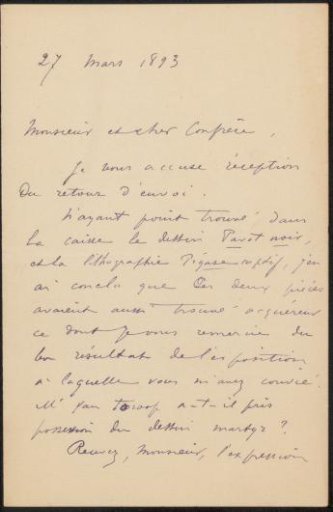 27 mars 1893
Monsieur et cher Confrère,
Je vous accuse réception
du retour d'envoi.
N'ayant point trouvé dans
la caisse le dessin Pavot noir,
et la lithographie Pégase captif, j'en
ai conclu que ces deux pièces
avaient aussi trouvé acquéreur
ce dont je vous remercie du
bon résultat de l'exposition
à laquelle vous m'avez convié.
Mr Van a-t-il pris
possession du dessin martyr ?
Recevez, Monsieur, l'expression